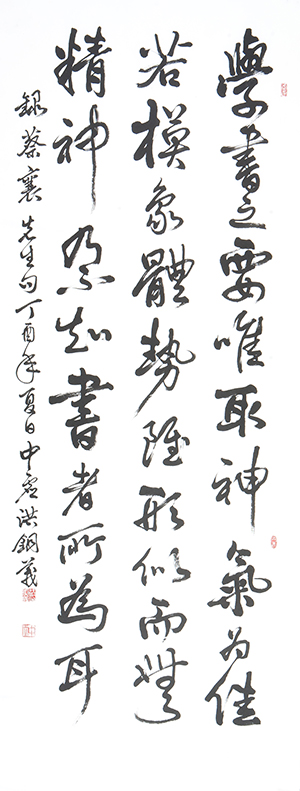 學書之要唯取神氣为佳
若模象體勢雖形似而無
精神乃不知書者所為耳
錄蔡襄先生句丁酉年夏日中君洪銅義